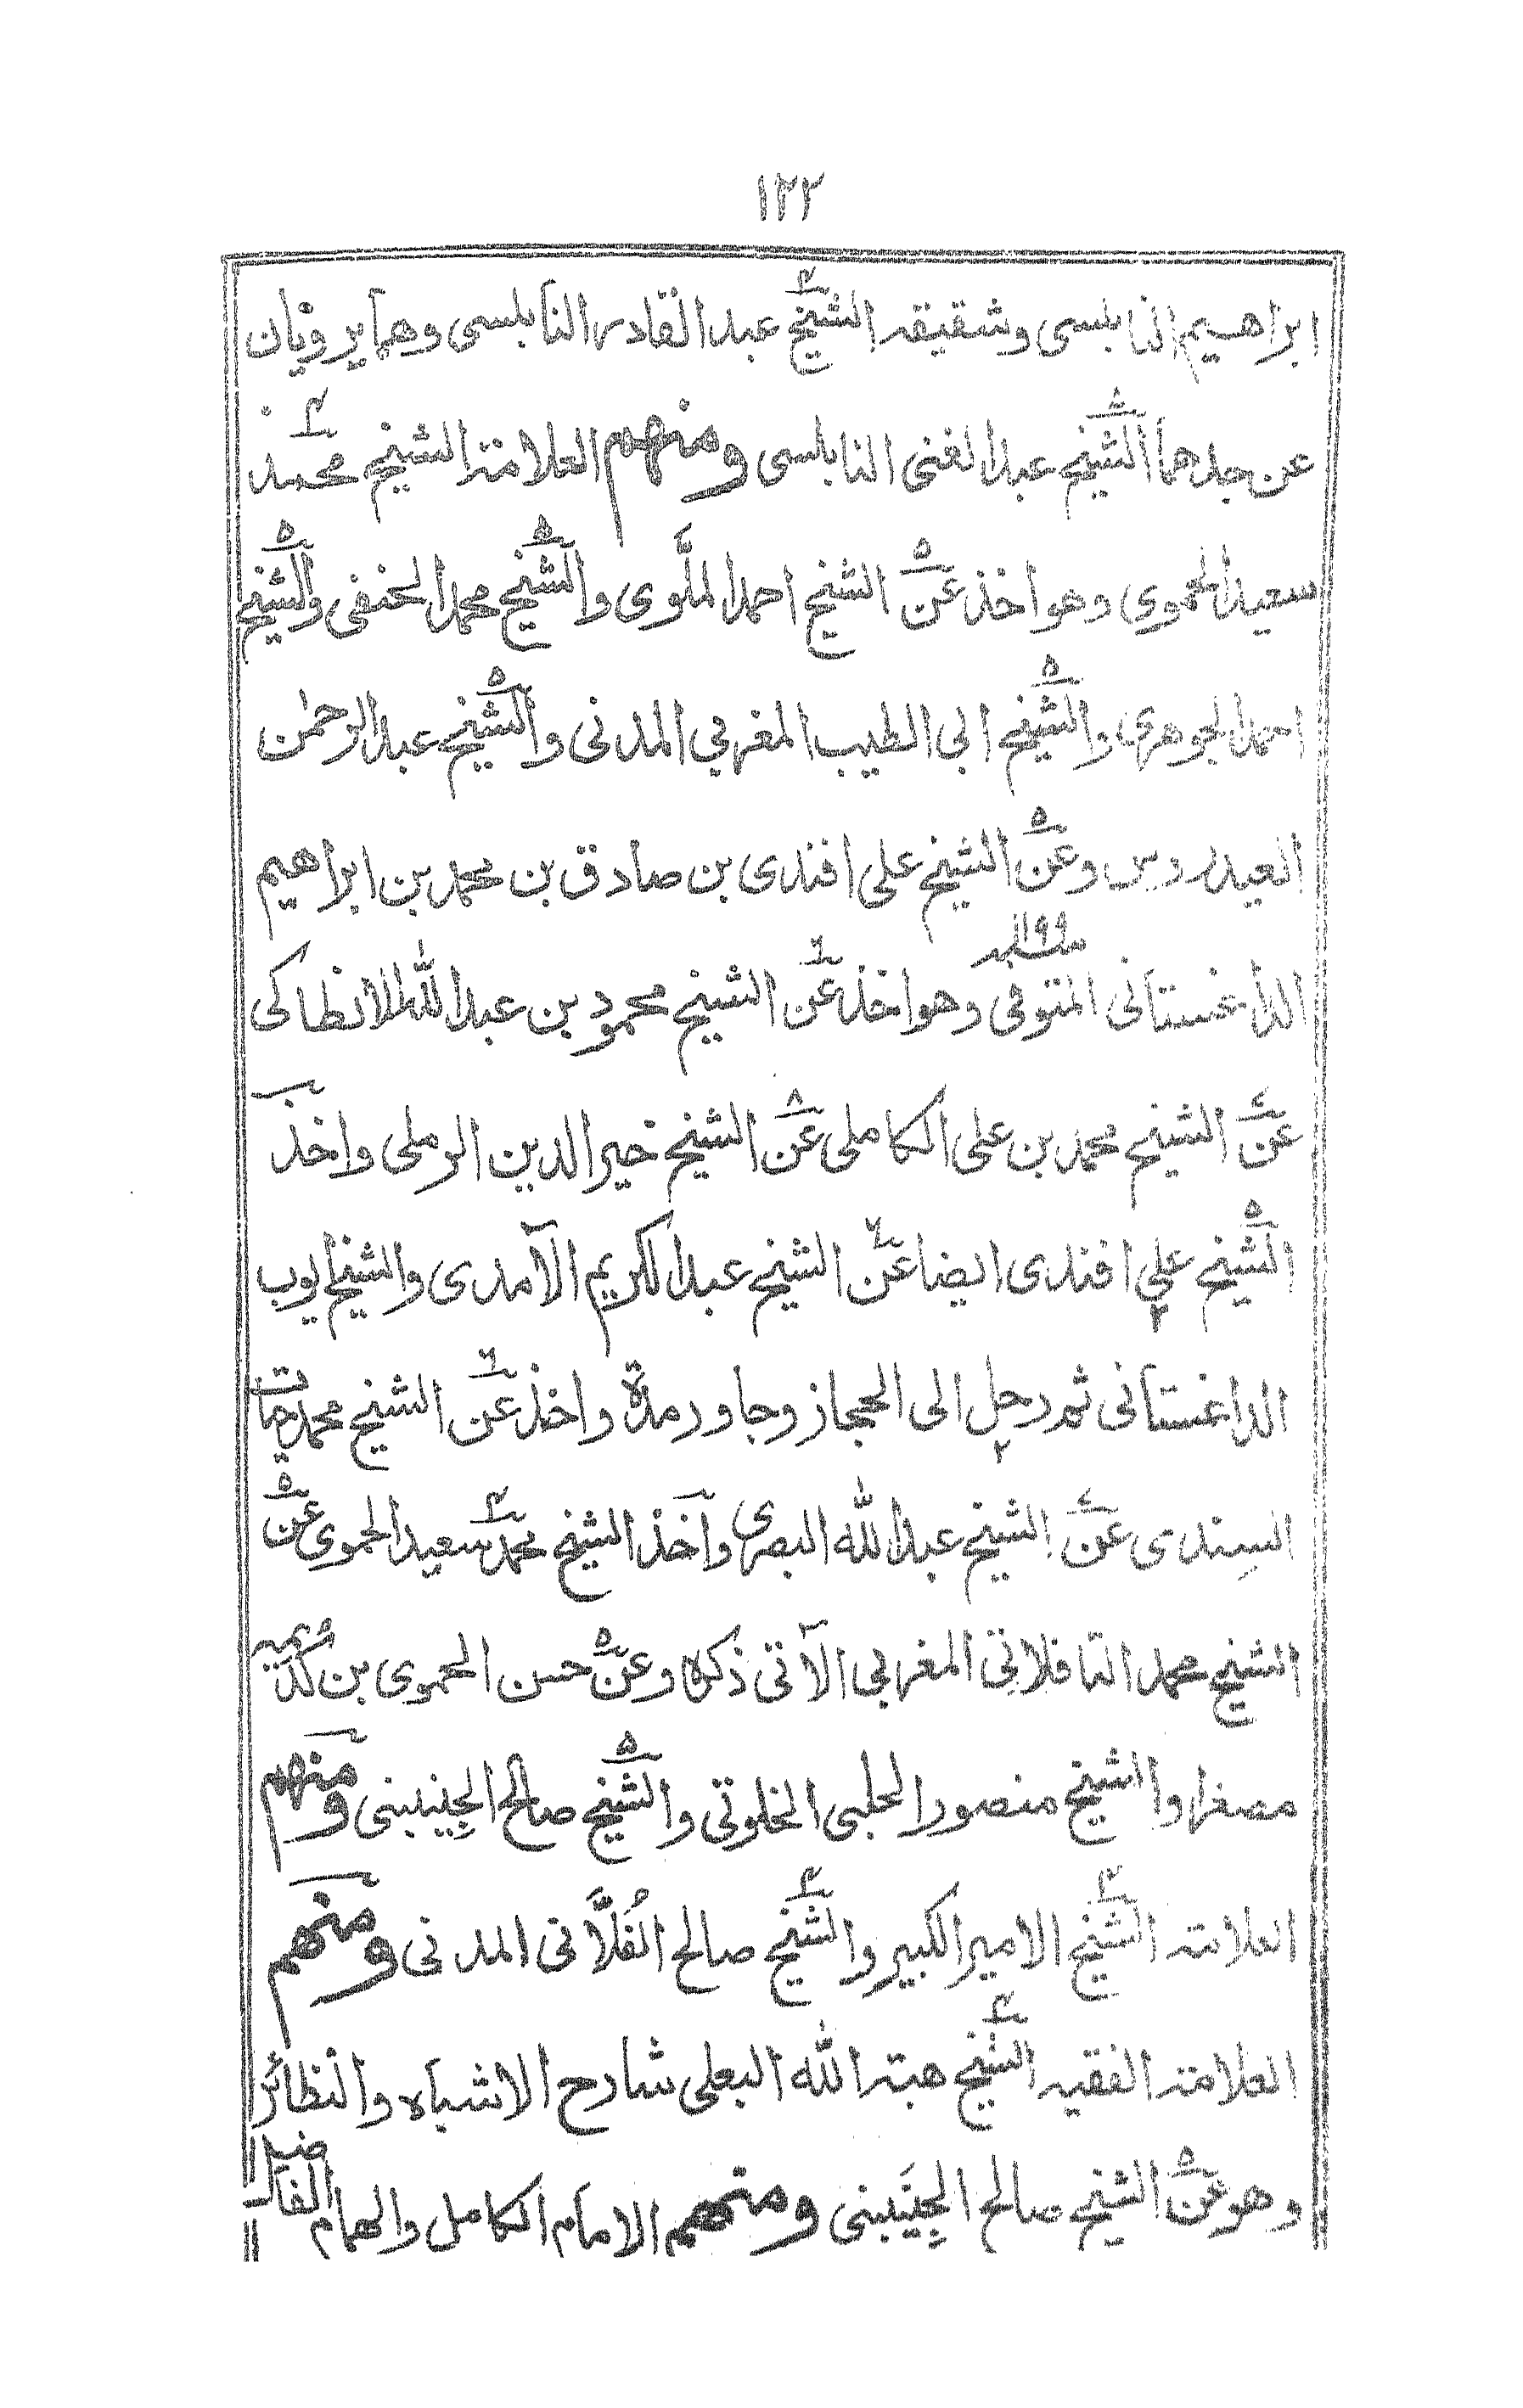 ١٢٢
ابراهيم النابلسى وشقيقه الشيخ عبد القادر النابلسى وهما يرويان
عن جدهما الشيخ عبد الغنى النابلسى ومنهم العلامة الشيخ محمد
سعيد الحموى وهو اخذ عن الشيخ احمد الملَّوى والشيخ محمد الحنفى والشيخ
احمد الجوهرى والشيخ ابى الطيب المغربي المدنى والشيخ عبد الرحمٰن
العيدروس وعن الشيخ على افندى بن صادق بن محمد بن ابراهيم
الداغستانى المتوفى سنة ١١٩٩ وهو اخذ عن الشيخ محمود بن عبد الله الانطاكى
عن الشيخ محمد بن على الكاملى عن الشيخ خير الدين الرملى واخذ
الشيخ علي افندى ايضا عن الشيخ عبد الكريم الآمدى والشيخ ايوب
الداغستانى ثم رحل الى الحجاز وجاور مدة واخذ عن الشيخ محمد حيات
السِندى عن الشيخ عبد الله البصرى واخذ الشيخ محمد سعيد الحموى عن
الشيخ محمد التافلاتى المغربي الآتى ذكره وعن حسن الحموى بن كُدَيمير
مصغرا والشيخ منصور الحلبى الخلوتى والشيخ صالح الجِنينينى ومنهم
العلامة الشيخ الامير الكبير والشيخ صالح الفُلَّانى المدنى ومنهم
العلامة الفقيه الشيخ هبة الله البعلى شارح الاشباه والنظائر
وهو عن الشيخ صالح الجِنَينينى ومنهم الامام الكامل والهمام الفاضل